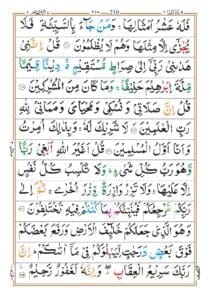 210
فَلَهٗ عَشْرُ اَمْثَالِهَا ۚ وَمَنْ جَآءَ بِالسَّيِّئَةِ فَلَا
يُجْزٰٓى اِلَّا مِثْلَهَا وَهُمْ لَا يُظْلَمُوْنَ ۝ قُلْ اِنَّنِيْ
هَدٰىنِيْ رَبِّيْٓ اِلٰى صِرَاطٍ مُّسْتَقِيْمٍ ۚ دِيْنًا قِيَمًا
مِّلَّةَ اِبْرٰهِيْمَ حَنِيْفًا ۚ وَمَا كَانَ مِنَ الْمُشْرِكِيْنَ ۝
قُلْ اِنَّ صَلَاتِيْ وَنُسُكِيْ وَمَحْيَايَ وَمَمَاتِيْ لِلّٰهِ
رَبِّ الْعٰلَمِيْنَ ۝ لَا شَرِيْكَ لَهٗ ۚ وَبِذٰلِكَ اُمِرْتُ
وَاَنَا اَوَّلُ الْمُسْلِمِيْنَ ۝ قُلْ اَغَيْرَ اللّٰهِ اَبْغِيْ
رَبًّا وَّهُوَ رَبُّ كُلِّ شَيْءٍ ۚ وَلَا تَكْسِبُ كُلُّ نَفْسٍ
اِلَّا عَلَيْهَا ۚ وَلَا تَزِرُ وَازِرَةٌ وِّزْرَ اُخْرٰى ۚ ثُمَّ اِلٰى
رَبِّكُمْ مَّرْجِعُكُمْ فَيُنَبِّئُكُمْ بِمَا كُنْتُمْ فِيْهِ تَخْتَلِفُوْنَ ۝
وَهُوَ الَّذِيْ جَعَلَكُمْ خَلٰٓئِفَ الْاَرْضِ وَرَفَعَ بَعْضَكُمْ
فَوْقَ بَعْضٍ دَرَجٰتٍ لِّيَبْلُوَكُمْ فِيْ مَآ اٰتٰىكُمْ ۗ اِنَّ
رَبَّكَ سَرِيْعُ الْعِقَابِ ۖ وَاِنَّهٗ لَغَفُوْرٌ رَّحِيْمٌ ۝